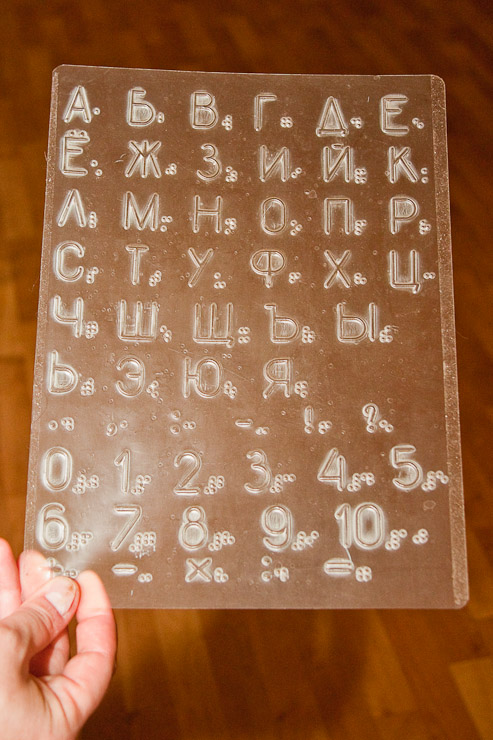 А Б В Г Д Е
Ё Ж З И Й К
Л М Н О П Р
С Т У Ф Х Ц
Ч Ш Щ Ъ Ы
Ь Э Ю Я
. , : - ! ?
0 1 2 3 4 5
6 7 8 9 10
+ - × : =